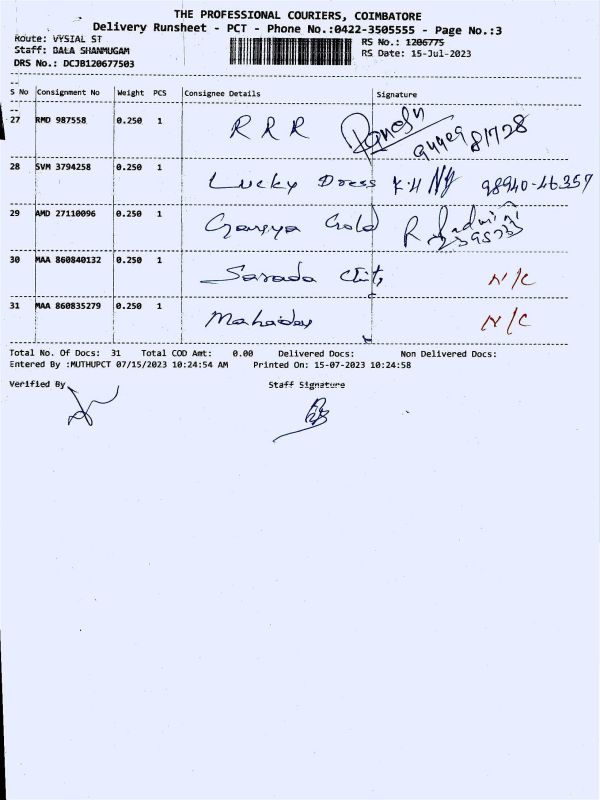 THE PROFESSIONAL COURIERS, COIMBATORE
Delivery Runsheet - PCT - Phone No.:0422-3505555 - Page No.:3
Route: VYSIAL ST
RS No.: 1206775
Staff: BALA SHANMUGAM
RS Date: 15-Jul-2023
DRS No.: DCJB120677503
S No Consignment No Weight PCS Consignee Details Signature
27 RMD 987558 0.250 1 R R R
28 SVM 3794258 0.250 1 Lucky Dress 98940-46357
29 AMD 27110096 0.250 1 Gold
30 MAA 860840132 0.250 1 Sarada Chits N/C
31 MAA 860835279 0.250 1 N/C
Total No. Of Docs: 31 Total COD Amt: 0.00 Delivered Docs: Non Delivered Docs:
Entered By :MUTHUPCT 07/15/2023 10:24:54 AM Printed On: 15-07-2023 10:24:58
Verified By Staff Signature